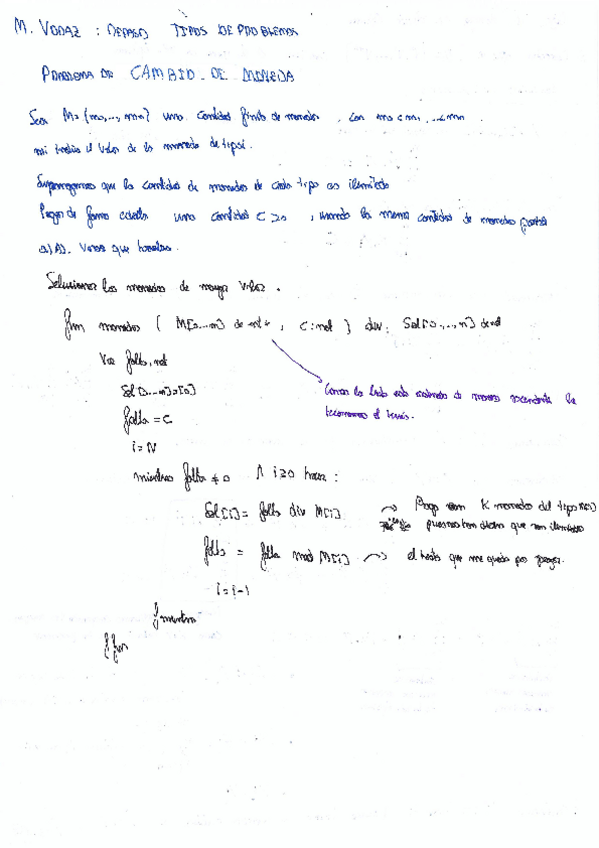 M. VORAZ : REPASO TIPOS DE PROBLEMAS
PROBLEMA DE CAMBIO DE MONEDA
Sea M={m0,..., mn} una cantidad finita de monedas, con m0<m1,...<mn.
mi indica el valor de la moneda de tipo i.
Supongamos que la cantidad de monedas de cada tipo es ilimitada
Pagar de forma exacta una cantidad C>0, usando la menor cantidad de monedas posible
a) Alg. Voraz que
Seleccionar las monedas de mayor valor.
fun monedas ( M[0...n] de ent+, C:nat ) dev: Sol[0,...,n] de nat
Var falta, nat
Sol[0...n]=[0]
falta = C
i = N
mientras falta ≠ 0 ∧ i≥0 hacer :
Sol[i]= falta div M[i]
falta = falta mod M[i]
i=i-1
fmientras
ffun
Como la lista está ordenada de manera ascendente la
recorremos al revés.
Pago con K monedas del tipo M[i]
pues nos han dicho que son ilimitadas
el resto que me queda por pagar.